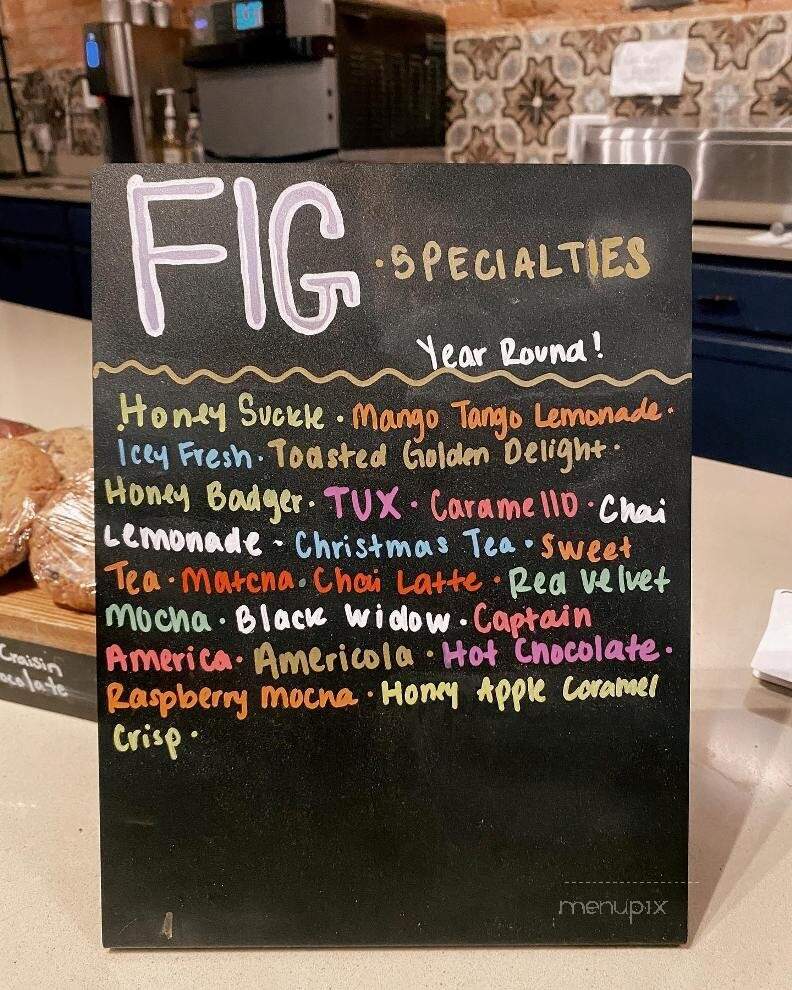 FIG · SPECIALTIES
Year Round!
Honey Suckle · Mango Tango Lemonade ·
Icey Fresh · Toasted Golden Delight ·
Honey Badger · TUX · Caramello · Chai
Lemonade - Christmas Tea · Sweet
Tea · Matcha · Chai Latte · Red Velvet
Mocha · Black Widow · Captain
America · Americola · Hot Chocolate ·
Raspberry Mocha · Honey Apple Caramel
Crisp ·
Craisin
menupix